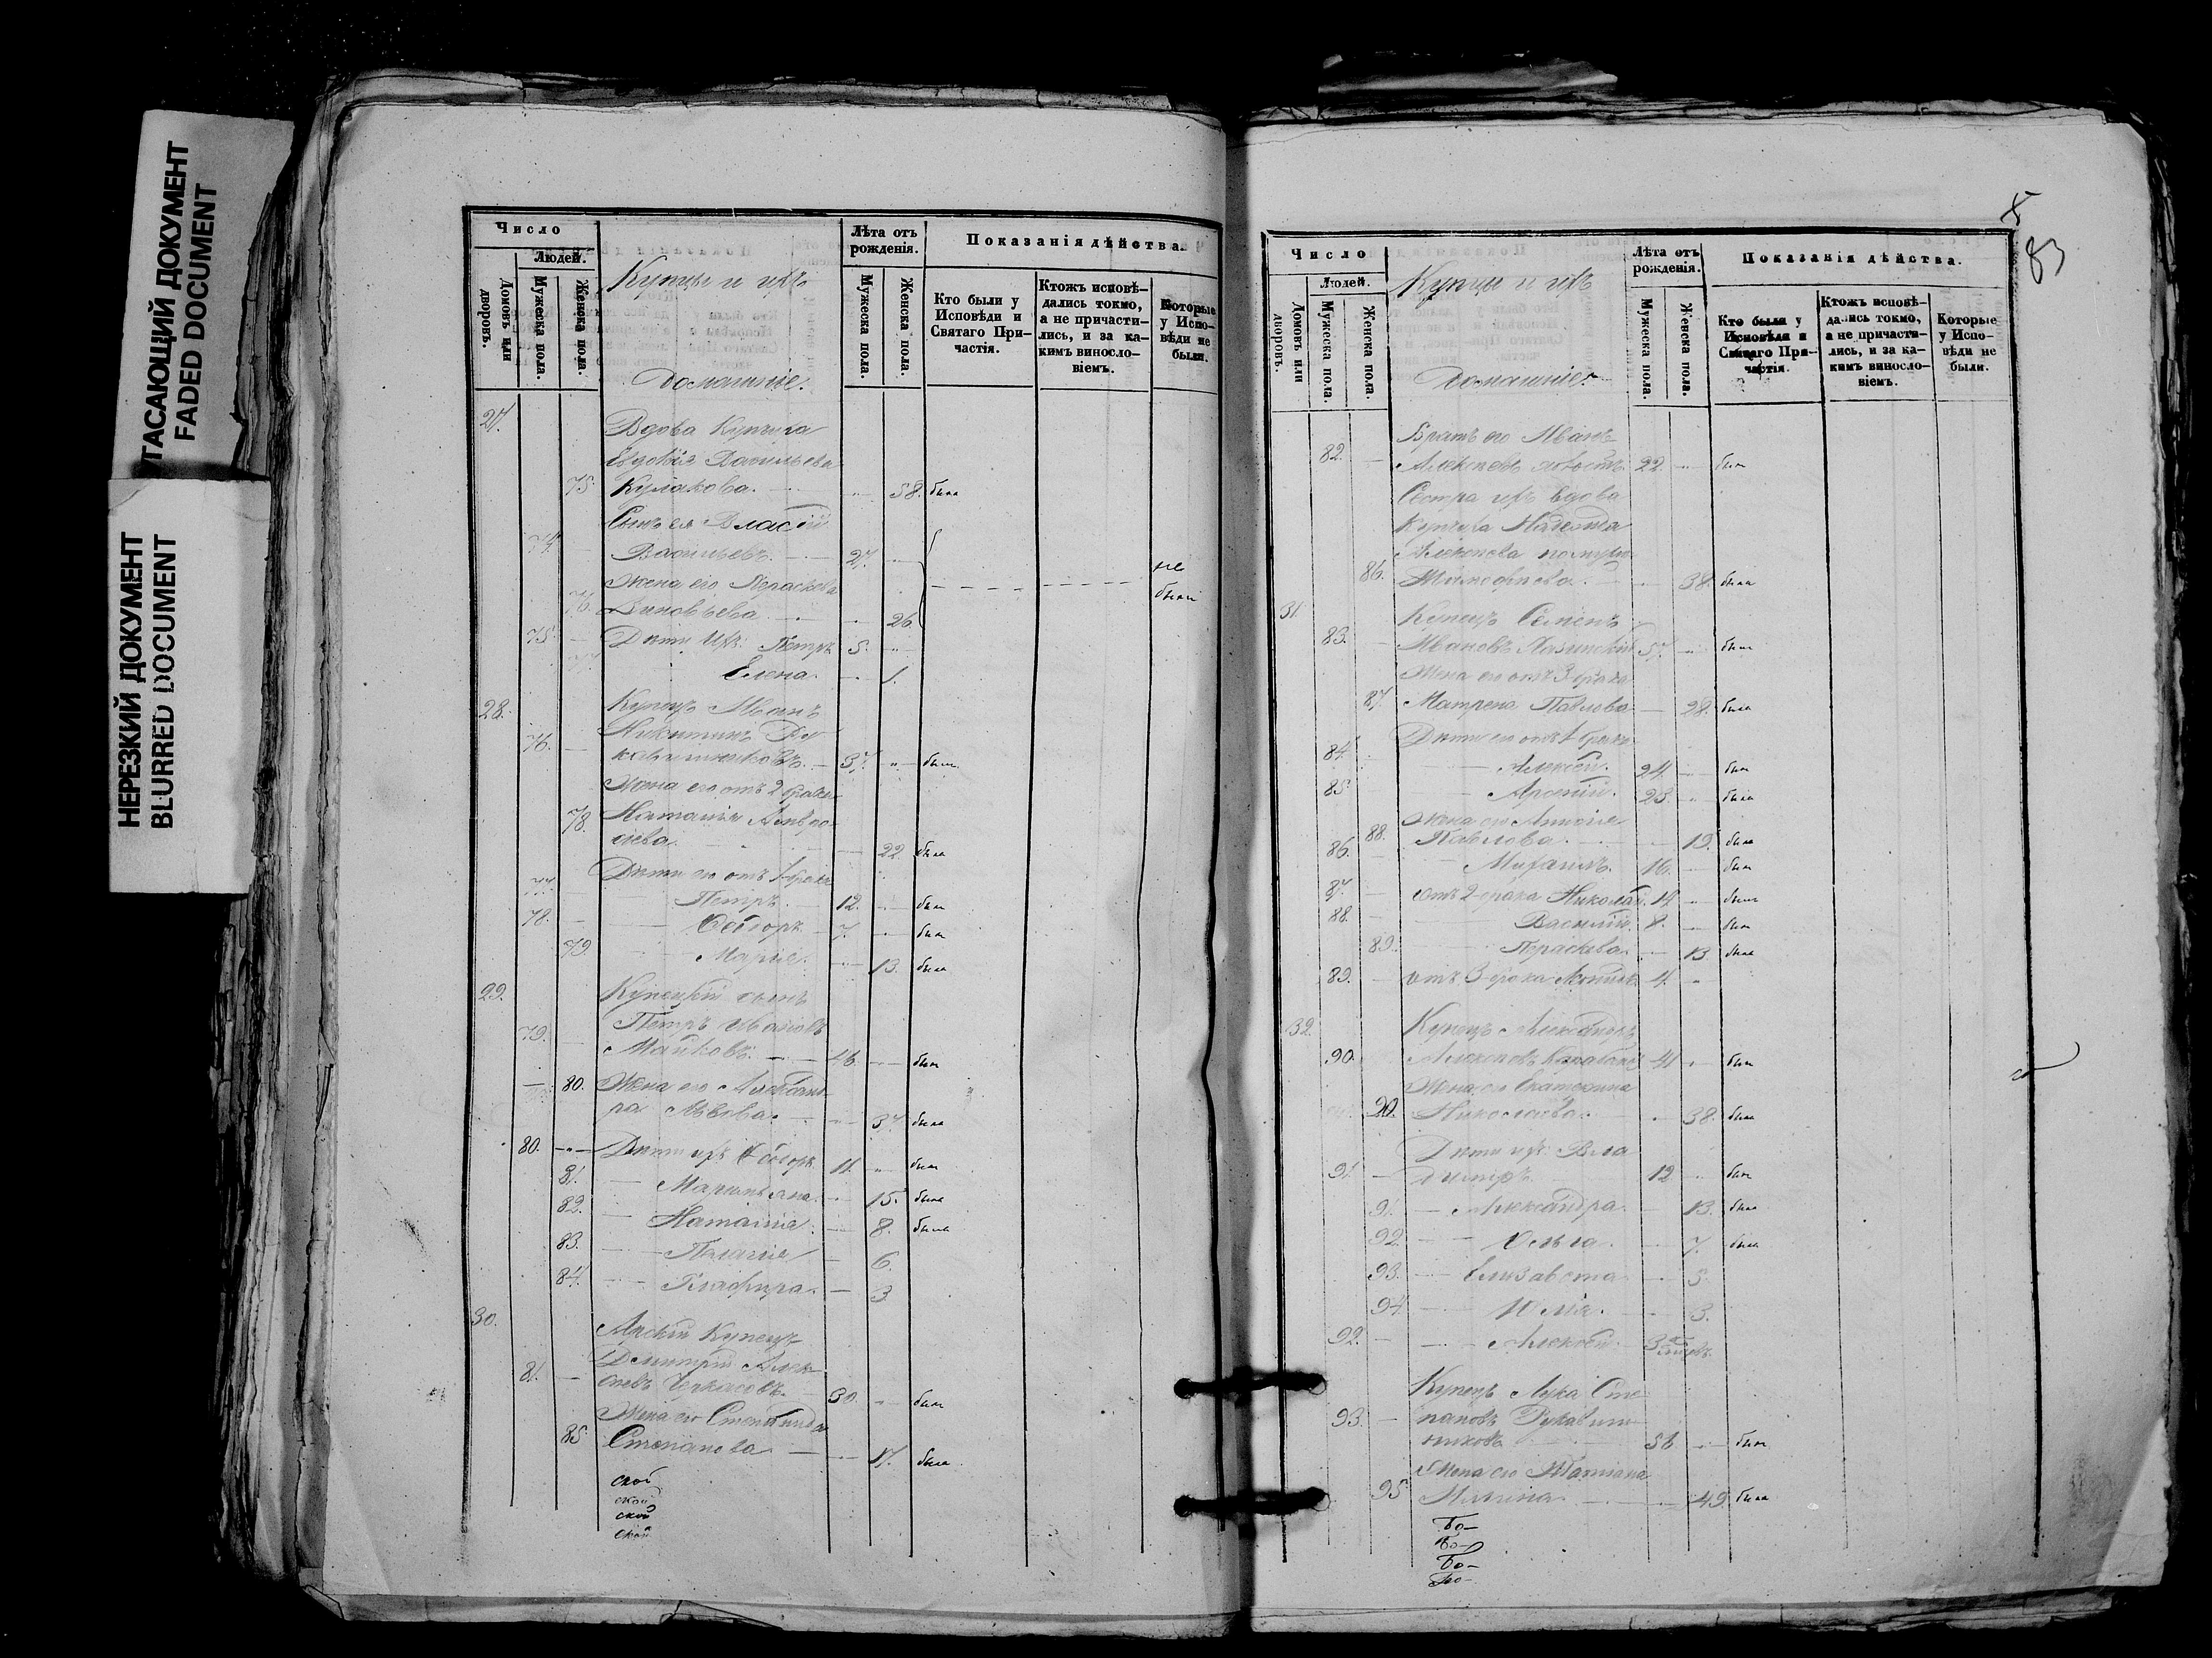 УГАСАЮЩИЙ ДОКУМЕНТ
FADED DOCUMENT
НЕРЕЗКИЙ ДОКУМЕНТ
BLURRED DOCUMENT
Число
Людей.
Домовъ или дворовъ.
Мужеска пола.
Женска пола.
Купцы и ихъ
домашніе.
Лѣта отъ рожденія.
Мужеска пола.
Женска пола.
Показанія дѣйства.
Кто были у Исповѣди и Святаго Причастія.
Ктожъ исповѣдались токмо, а не причастились, и за какимъ винословіемъ.
Которые у Исповѣди не были.
27.
Вдова Купчиха
Евдокія Васильева
75. Кулакова. 58. была
Сынъ ея Власій
74. Васильевъ. 27.
не были
Жена его Параскева
76. Зиновьева 26
75. Дѣти ихъ: Петръ 5.
Елена. 1.
28. Купецъ Иванъ
Никитинъ Ру
76. кавишниковъ. 37. былъ
Жена его отъ 2 брака
78. Наталія Амвро
сіева 22. была
Дѣти его отъ 1 брака
77. Петръ 12. былъ
78. Ѳеодоръ 7. былъ
79. Марія. 13. была
29. Купецкій сынъ
Петръ Ивановъ
79. Майковъ. 46. былъ
80. Жена его Александ
ра Львова. 37 была
80. Дѣти ихъ Ѳеодоръ 11. былъ
81. Маріамна. 15. была
82. Наталія. 8. была
83. Пелагія 6.
84. Глафира. 3
30. Арскій Купецъ
Димитрій Алек
81. сѣевъ Черкасовъ. 30. былъ
Жена его Степанида
85 Степанова 17. была
ской
ской
ской
ской
83
Число
Людей.
Домовъ или дворовъ.
Мужеска пола.
Женска пола.
Купцы и ихъ
домашніе.
Лѣта отъ рожденія.
Мужеска пола.
Женска пола.
Показанія дѣйства.
Кто были у Исповѣди и Святаго Причастія.
Ктожъ исповѣдались токмо, а не причастились, и за какимъ винословіемъ.
Которые у Исповѣди не были.
Братъ его Иванъ
82. Алексѣевъ холостъ 22 былъ
Сестра ихъ вдова
Купчиха Надежда
Алексѣева по мужу
86. Тимофѣева. 38. была
31. Купецъ Семенъ
83. Ивановъ 57. былъ
Жена его отъ 3 брака
87. Матрена Павлова 28. была
Дѣти его отъ 1 брака
84. Алексѣй. 24. былъ
85. Арсеній. 23. былъ
Жена его
88. Павлова 19. была
86. Михаилъ. 16. былъ
87. отъ 2 брака Николай. 14. былъ
88. Василій. 8. былъ
89. Параскева. 13. была
89. отъ 3 брака 4.
32. Купецъ Александръ
90. Алексѣевъ 41 былъ
Жена его Екатерина
90. Николаева. 38. была
Дѣти ихъ: Вла
91. диміръ. 12 былъ
91. Александра. 13. была
92. Ольга. 7. была
93. Елизавета 5.
94. Юлія. 3.
92. Алексѣй. 3 мѣсяц.
Купецъ Лука Сте
93. пановъ Рукавиш
никовъ 56 былъ
Жена его Татіана
95 49. была
Бо-
Бо-
Бо-
Бо-